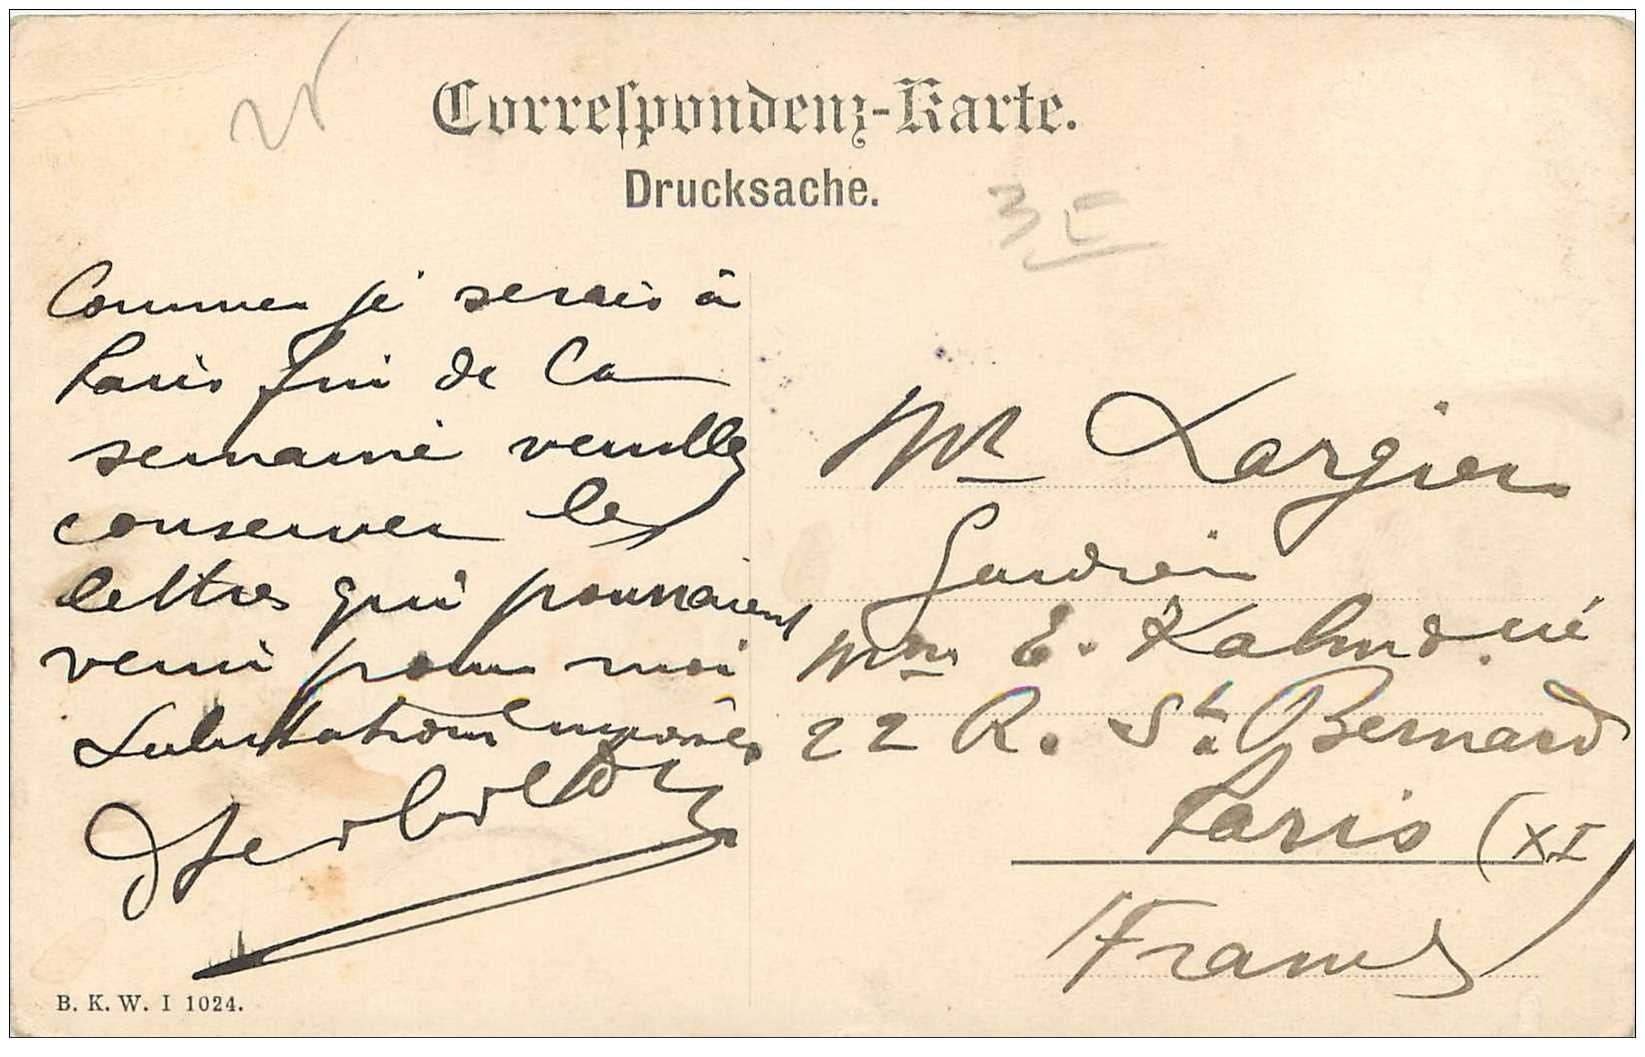 Correspondenz-Karte.
Drucksache.
Comme je serais à
Paris fin de la
semaine veuillez
conserver les
lettres qui pourraient
venir pour moi
Salutations empressées
Mr Largier
Gardien
Mon E.
22 R. St. Bernard
Paris (XI)
France
B. K. W. I 1024.